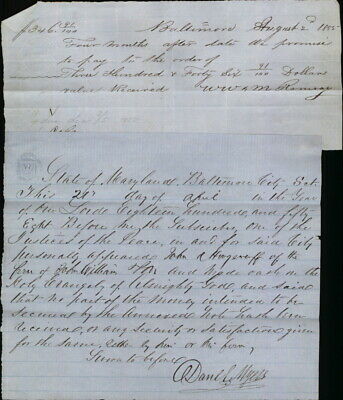 $346 91/100 Baltimore August 2d 1855
Four months after date we promise
to pay to the order of
Three Hundred & Forty Six 91/100 Dollars
value Received W W & M
State of Maryland, Baltimore City Sct.
This 21st day of April in the Year
of Our Lord Eighteen hundred, and fifty
Eight Before me, the Subscriber one of the
Justices of the Peace, in and for said City
personally appeared John A of the
firm of John William & Son and made oath on the
Holy Evangely of Almighty God, and said
that no part of the money intended to be
Secured by the annexed Note hath been
received, or any Security or Satisfaction given
for the Same, Either by him or the firm,
Sworn to before
Danl. C. Myers